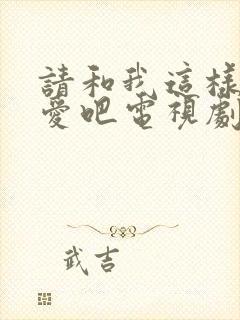 請和我這樣
愛吧電視劇
武吉